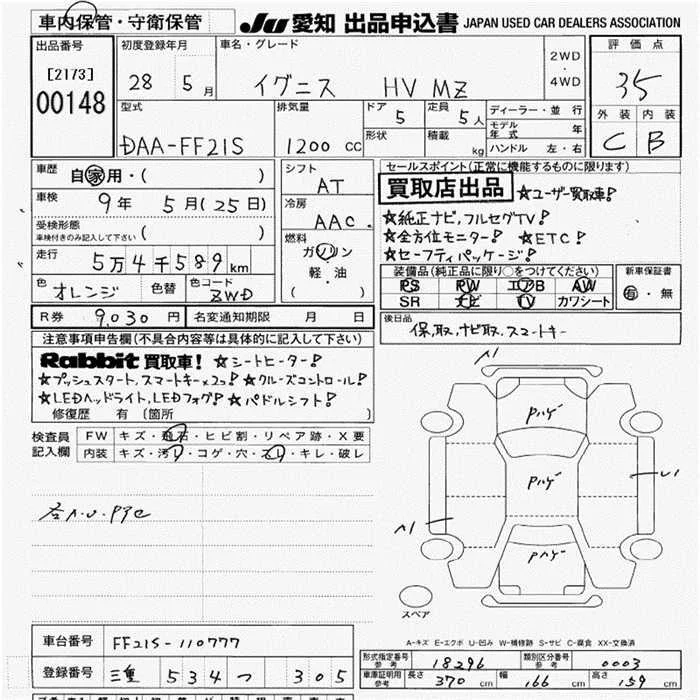 車内保管・守衛保管
JU 愛知 出品申込書 JAPAN USED CAR DEALERS ASSOCIATION
出品番号
[2173]
00148
初度登録年月
28 5月
車名・グレード
イグニス HV MZ
2WD
・
4WD
評価点
3.5
外装 内装
C B
型式
DAA-FF21S
排気量
1200 cc
ドア
5
定員
5人
形状
積載
kg
ディーラー・並行
モデル年式 年
ハンドル 左・右
車歴
自家用・( )
車検
9年 5月(25日)
受検形態
車検付きのみ記入して下さい ( )
走行
5万4千589km
色
オレンジ
色替
色コード
ZWD
シフト
AT
冷房
AAC
燃料
ガソリン
軽・油
( )
セールスポイント(正常に機能するものに限ります)
買取店出品 ☆ユーザー買取車!
☆純正ナビ,フルセグTV!
☆全方位モニター! ☆ETC!
☆セーフティパッケージ!
装備品(純正品に限り○をつけてください)
PS PW エアB AW
SR ナビ TV カワシート
新車保証書
有・無
R券 9,030円
名変通知期限 月 日
後日品
保,取,ナビ取,スマートキー
注意事項申告欄(不具合内容等は具体的に記入して下さい)
Rabbit 買取車! ☆シートヒーター!
☆プッシュスタート,スマートキー×2コ! ☆クルーズコントロール!
☆LEDヘッドライト,LEDフォグ! ☆パドルシフト!
修復歴 有 〔箇所 〕
検査員記入欄
FW キズ・飛石・ヒビ割・リペア跡・X要
内装 キズ・汚れ・コゲ・穴・スレ・キレ・破レ
A1
Pハゲ
Pハゲ
Pハゲ
A1
U1
スペア
A-キズ E-エクボ U-凹み W-補修跡 S-サビ C-腐食 XX-交換済
車台番号
FF21S-110777
登録番号
三重 534 つ 305
形式指定番号
参考
18296
類別区分番号
参考
0003
車庫証明用
参考
長さ 370 cm
幅 166 cm
高さ 159 cm